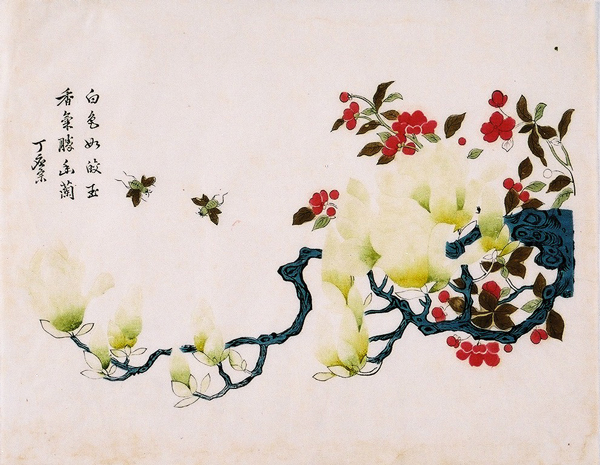 白色如皎玉
香氣勝幽蘭
丁應宗